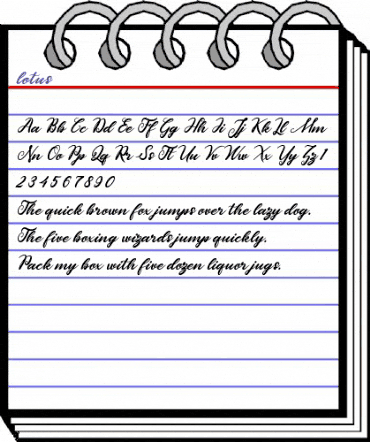 lotus
Aa Bb Cc Dd Ee Ff Gg Hh Ii Jj Kk Ll Mm
Nn Oo Pp Qq Rr Ss Tt Uu Vv Ww Xx Yy Zz 1
2 3 4 5 6 7 8 9 0
The quick brown fox jumps over the lazy dog.
The five boxing wizards jump quickly.
Pack my box with five dozen liquor jugs.